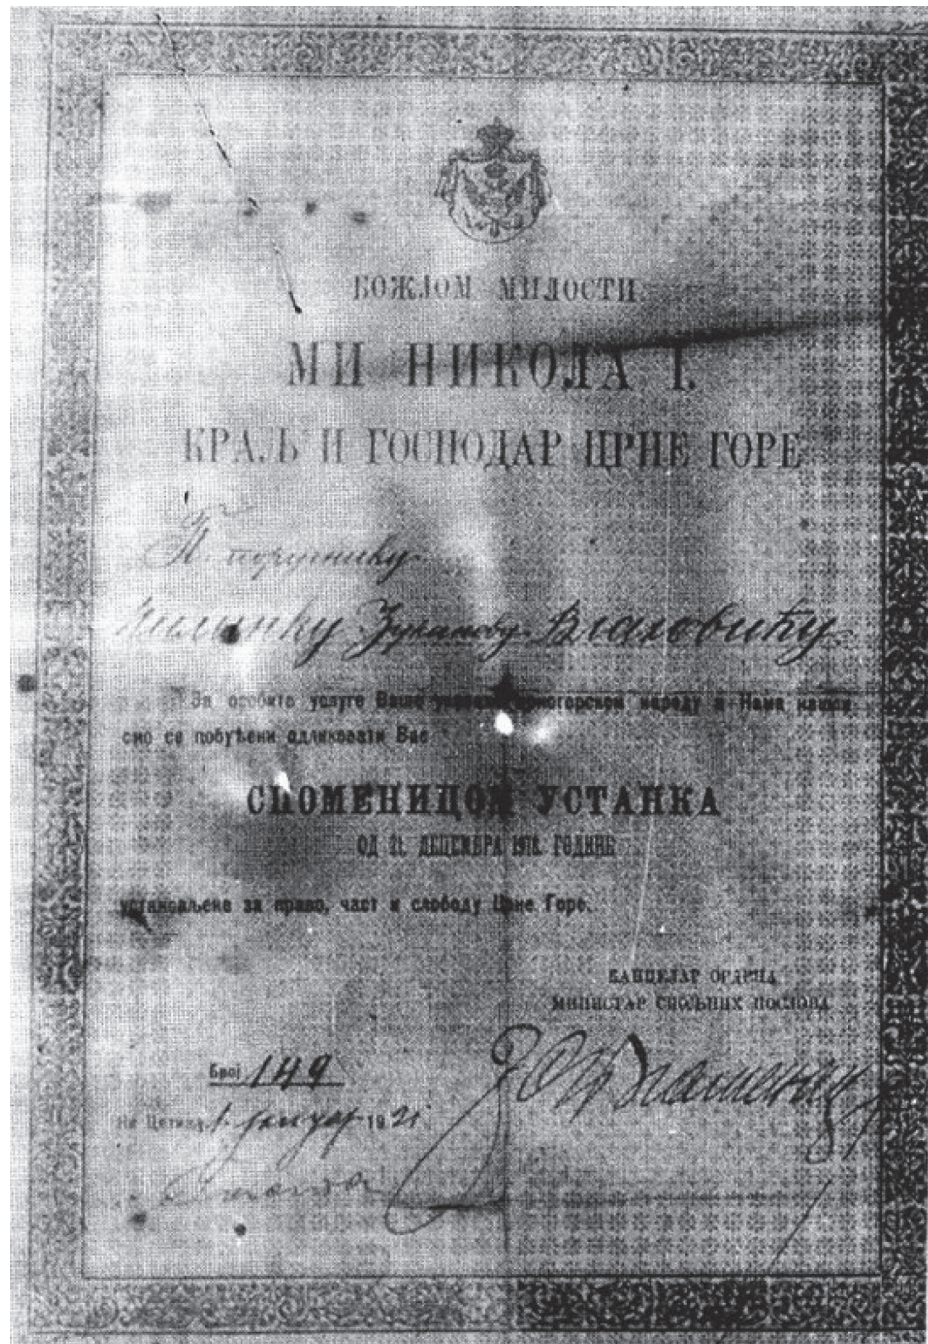 БОЖЈОМ МИЛОСТИ
МИ НИКОЛА I.
КРАЉ И ГОСПОДАР ЦРНЕ ГОРЕ
поручнику
Зуканову Влаховићу
За особито услуге Ваше указане црногорском народу и Нама нашли
смо се побуђени одликовати Вас
СПОМЕНИЦОМ УСТАНКА
ОД 21. ДЕЦЕМБРА 1918. ГОДИНЕ
установљене за право, част и слободу Црне Горе.
КАНЦЕЛАР ОРДЕНА
МИНИСТАР СПОЉНИХ ПОСЛОВА
Број 149
На Цетињу 1 јануар 1921